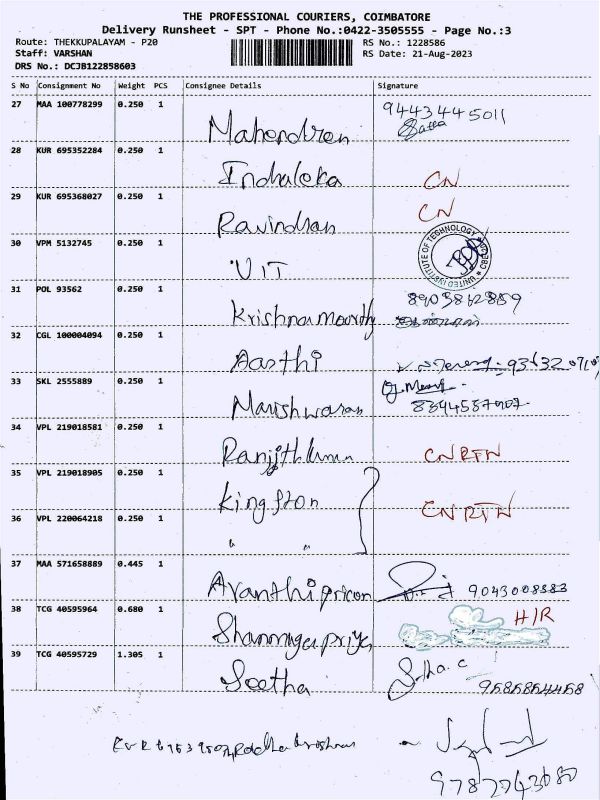 THE PROFESSIONAL COURIERS, COIMBATORE
Delivery Runsheet - SPT - Phone No.:0422-3505555 - Page No.:3
Route: THEKKUPALAYAM - P20 RS No.: 1228586
Staff: VARSHAN RS Date: 21-Aug-2023
DRS No.: DCJB122858603
S No Consignment No Weight PCS Consignee Details Signature
27 MAA 100778299 0.250 1 Mahendiren 9443445011
28 KUR 695352284 0.250 1 Indhuleka CN
29 KUR 695368027 0.250 1 Ravindran CN
30 VPM 5132745 0.250 1 UIT UNITED INSTITUTE OF TECHNOLOGY
31 POL 93562 0.250 1 Krishnamoorthy 8903862889
32 CGL 100004094 0.250 1 Aasthi
33 SKL 2555889 0.250 1
34 VPL 219018581 0.250 1 Ranjithkumar CNRTN
35 VPL 219018905 0.250 1 Kingston CNRTN
36 VPL 220064218 0.250 1 " "
37 MAA 571658889 0.445 1 9043008383
38 TCG 40595964 0.680 1 Shanmugapriya H/R
39 TCG 40595729 1.305 1 Seetha